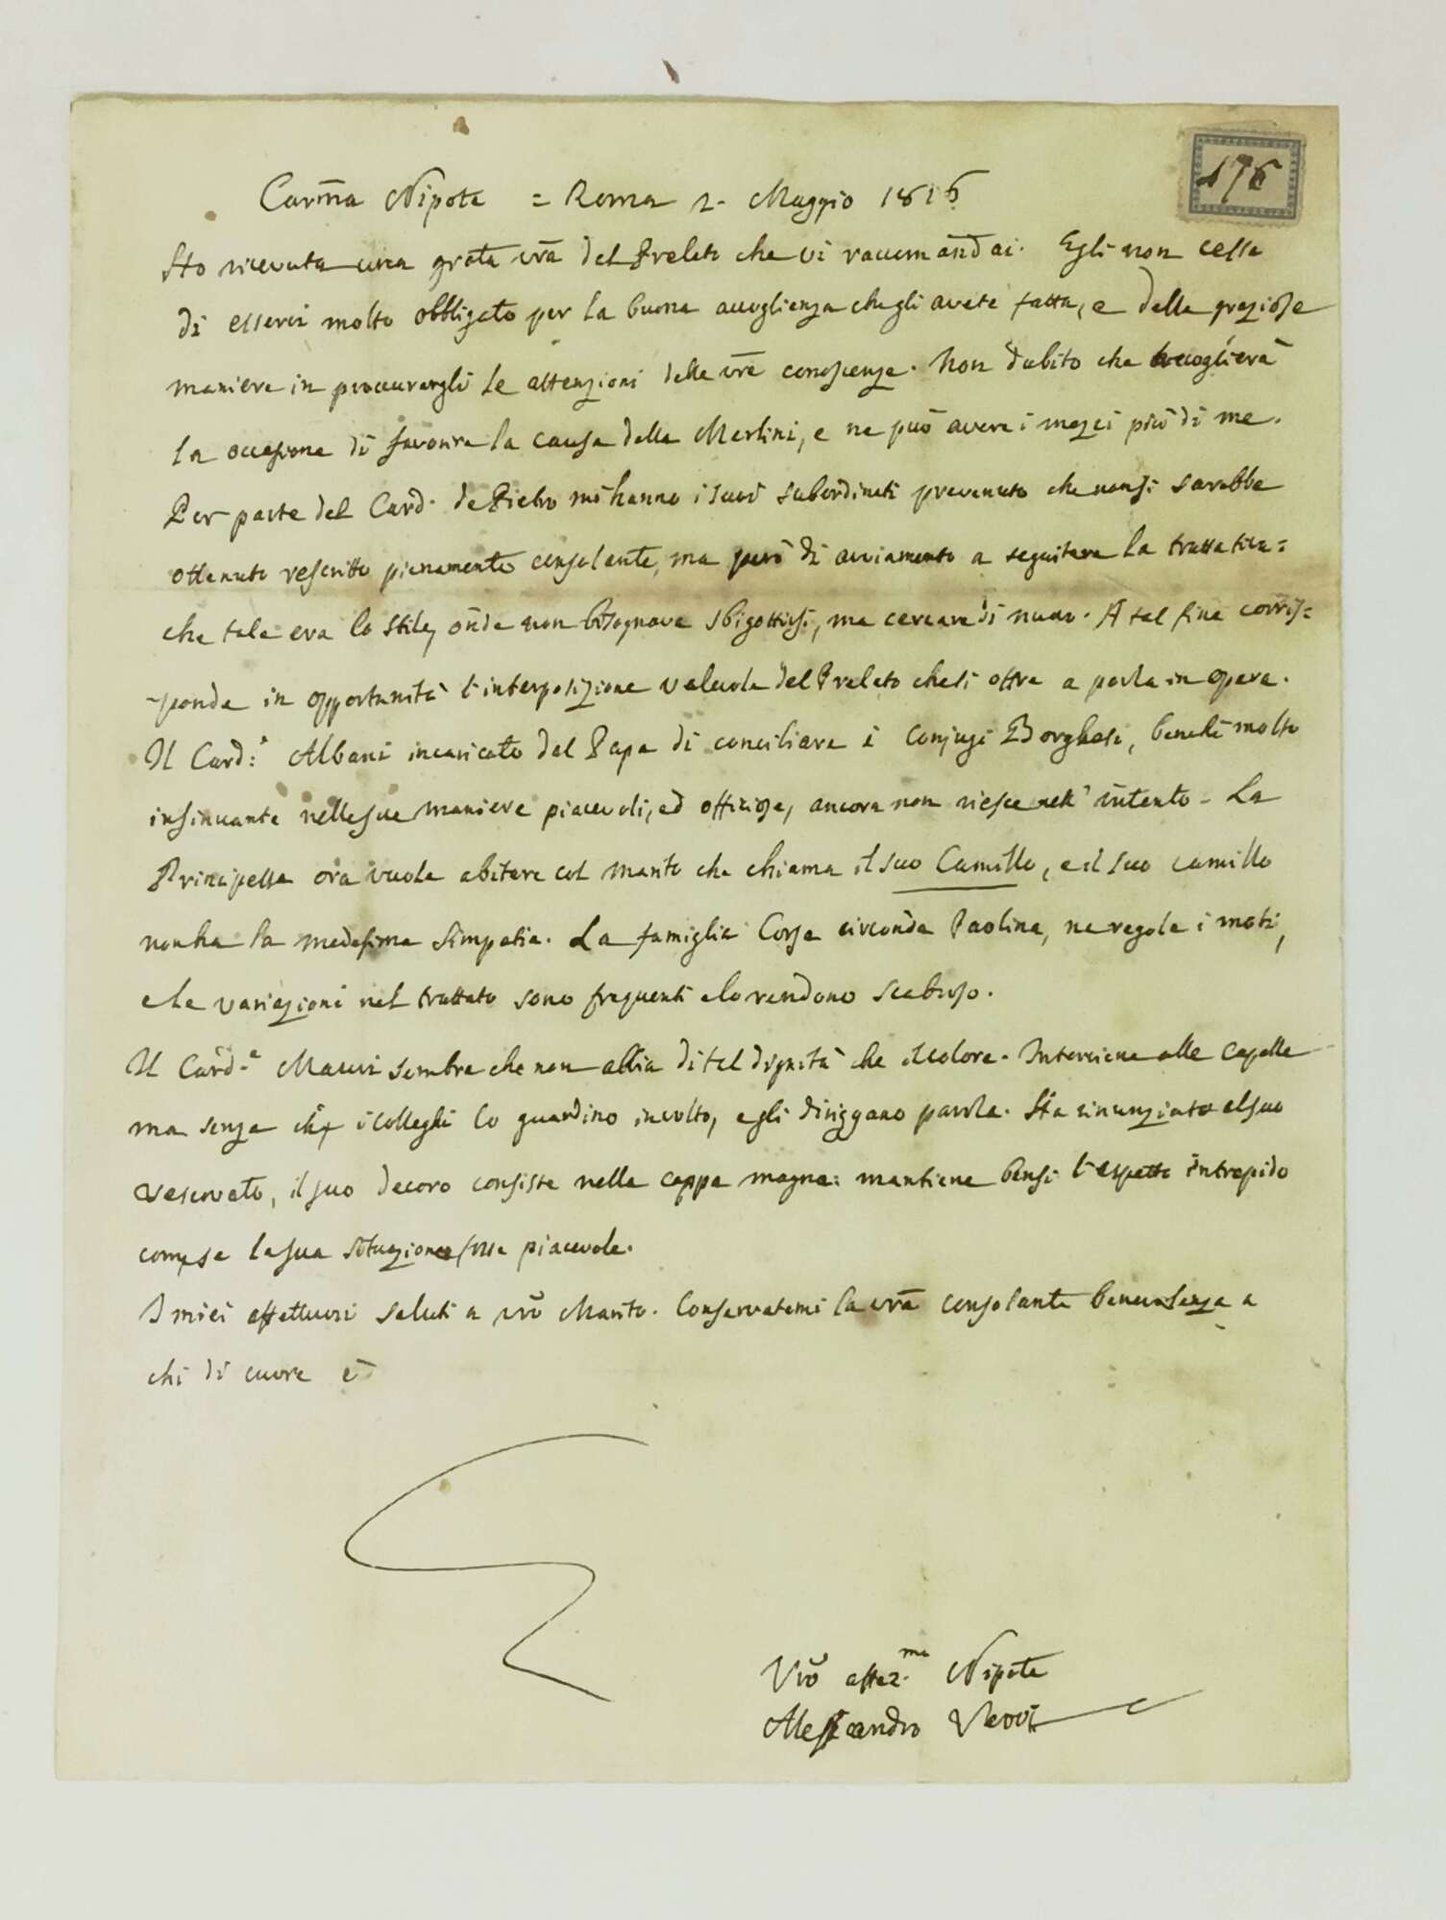 176
Carm̃a Nipote = Roma 2. Maggio 1816
Ho ricevuta una grata vrã del Prelato che vi raccomandai. Egli non cessa
di esservi molto obbligato per la buona accoglienza che gli avete fatta, e delle graziose
maniere in procurargli le attenzioni delle vrẽ conoscenze. Non dubito che accoglierà
la occasione di favorire la causa della Merlini, e ne può avere i mezzi più di me.
Per parte del Card. de Pietro mi hanno i suoi subordinati prevenuto che non si sarebbe
ottenuto rescritto pienamente consolante, ma però di avviamento a seguitare la trattativa:
che tale era lo stile, onde non bisognava sbigottirsi, ma cercare di nuovo. A tal fine corris=
ponde in opportunità l'interposizione valevole del Prelato che si offre a porla in opera.
Il Card.e Albani incaricato dal Papa di conciliare i Conjugi Borghese, benchè molto
insinuante nelle sue maniere piacevoli, ed offiziose, ancora non riesce nell'intento - La
Principessa ora vuole abitare col marito che chiama il suo Camillo, e il suo Camillo
non ha la medesima simpatia. La famiglia Corsa circonda Paolina, ne regola i moti,
e le variazioni nel trattato sono frequenti e lo rendono scabroso.
Il Card.e Mauri sembra che non abbia di tal dignità che il colore. Interviene alle capelle
ma senza che i colleghi lo guardino in volto, e gli diriggano parola. Ha rinunziato al suo
vescovato, il suo decoro consiste nella cappa magna: mantiene bensì l'aspetto intrepido
come se la sua situazione fosse piacevole.
I miei affettuosi saluti a vrõ Marito. Conservatemi la vrã consolante benevolenza a
chi di cuore è
Vrõ affez.mo Nipote
Alessandro Verri